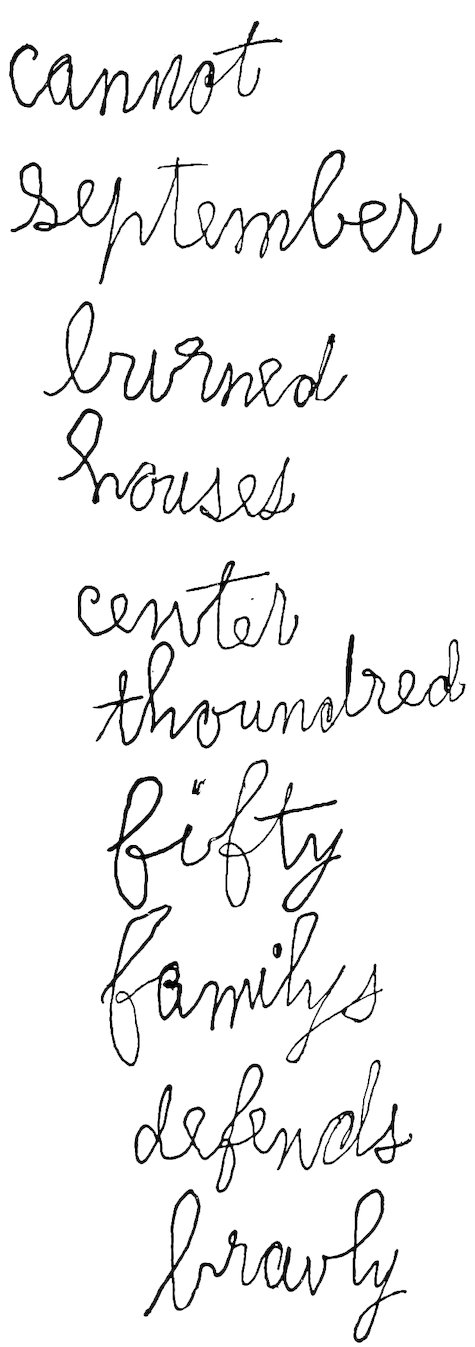 cannot
september
burned
houses
center
thoundred
fifty
familys
defends
bravly